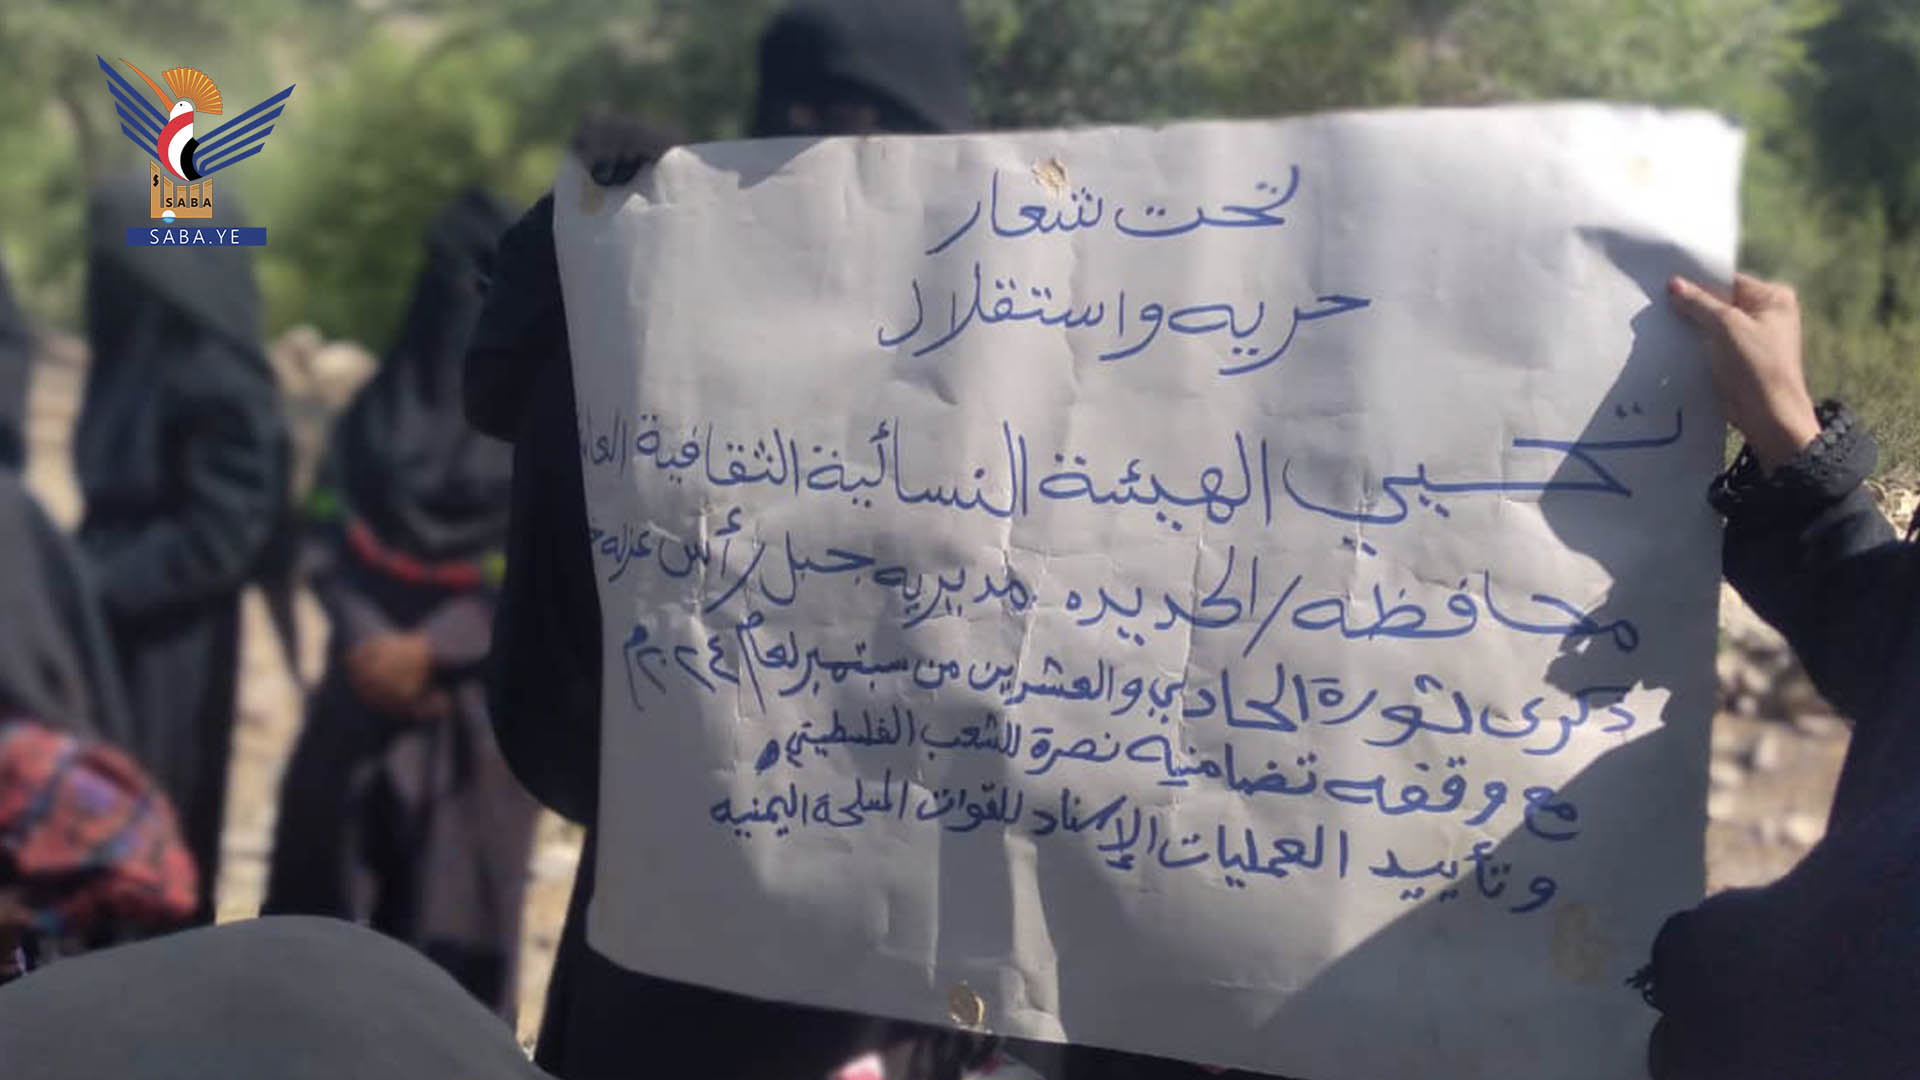 SABA
SABA.YE
تحت شعار
حريه واستقلال
تحيي الهيئة النسائية الثقافية
محافظه/الحديده مديريه جبل رأس عزله
ذكرى لثورة الحادي والعشرين من سبتمبر لعام ٢٠٢٤م
مع وقفه تضامنيه نصرة للشعب الفلسطيني
وتأييد العمليات الإسناد للقوات المسلحة اليمنيه